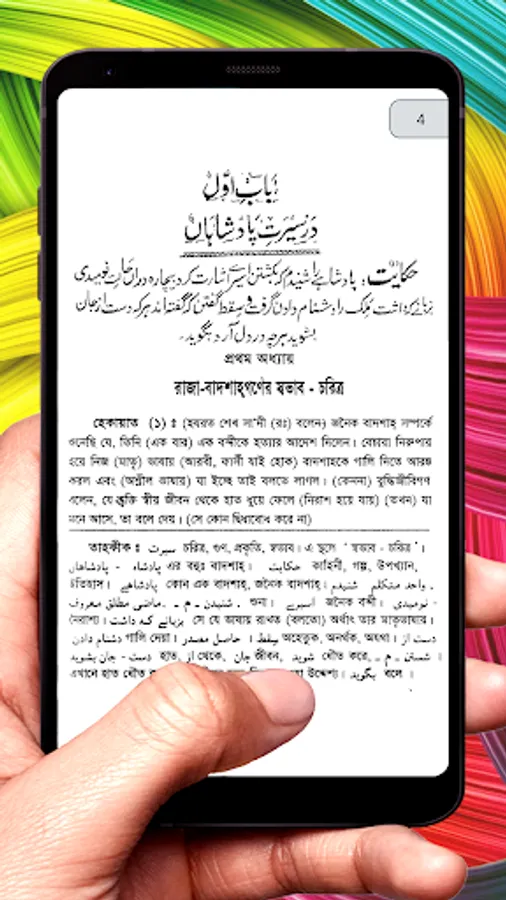 4
باب اوّل
در سیرت پادشاہان
حکایت، پادشاہے را شنیدم کہ بکشتن اسیرے اشارت کرد بیچارہ دراں حالت نومیدی
بزبانے کہ داشت ملک را دشنام دادن گرفت و سقط گفتن کہ گفتہ اند ہر کہ دست از جان
بشوید ہر چہ در دل آرد بگوید۔
প্রথম অধ্যায়
রাজা-বাদশাহ্গণের স্বভাব - চরিত্র
হেকায়াত (১) ঃ (হযরত শেখ সা'দী (রঃ) বলেন) জনৈক বাদশাহ্ সম্পর্কে
শুনেছি যে, তিনি (এক বার) এক বন্দীকে হত্যার আদেশ দিলেন। বেচারা নিরুপায়
হয়ে নিজ (মাতৃ) ভাষায় (আরবী, ফার্সী যাই হোক) বাদশাহকে গালি দিতে আরম্ভ
করল এবং (অশ্লীল ভাষায়) যা ইচ্ছে তাই বলতে লাগল। (কেননা) বুদ্ধিজীবিগণ
বলেন, যে ব্যক্তি স্বীয় জীবন থেকে হাত ধুয়ে ফেলে (নিরাশ হয়ে যায়) (তখন) যা
মনে আসে, তা বলে দেয়। (সে কোন দ্বিধাবোধ করে না)
তাহকীক ঃ سيرت চরিত্র, গুণ, প্রকৃতি, স্বভাব। এ স্থলে 'স্বভাব - চরিত্র'।
پادشاهان - پادشاه এর বহুঃ বাদশাহ্। حكايت কাহিনী, গল্প, উপখ্যান,
ইতিহাস। پادشاهے কোন এক বাদশাহ্, জনৈক বাদশাহ্। شنيدم واحد متكلم
ماضى مطلق معروف - م - شنيدن. শুনা। اسيرے জনৈক বন্দী। نوميدى -
নৈরাশ্য। بزبانے كه داشت সে যে ভাষায় রাখত (বলতো) অর্থাৎ তার মাতৃভাষায়।
دشنام دادن গালি দেয়া। حاصل مصدر। سقط অহেতুক, অনর্থক, অযথা। دست از
جان بشويد - دست হাত, از থেকে, جان জীবন, شويد ধৌত করে, شستن - م -।
এখানে হাত ধৌত করা উদ্দেশ্য। بگويد বলে ।